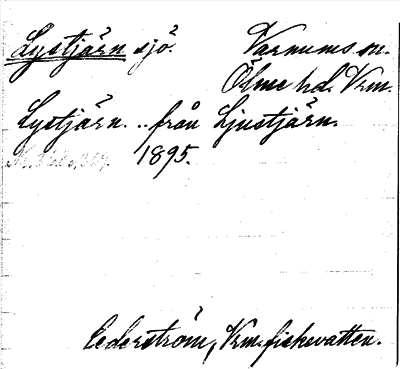 Lystjärn sjö.
Varnums sn.
Ölme hd. Vrm.
Lystjärn. .. från Ljustjärn.
1895.
Cederström, Vrm. fiskevatten.